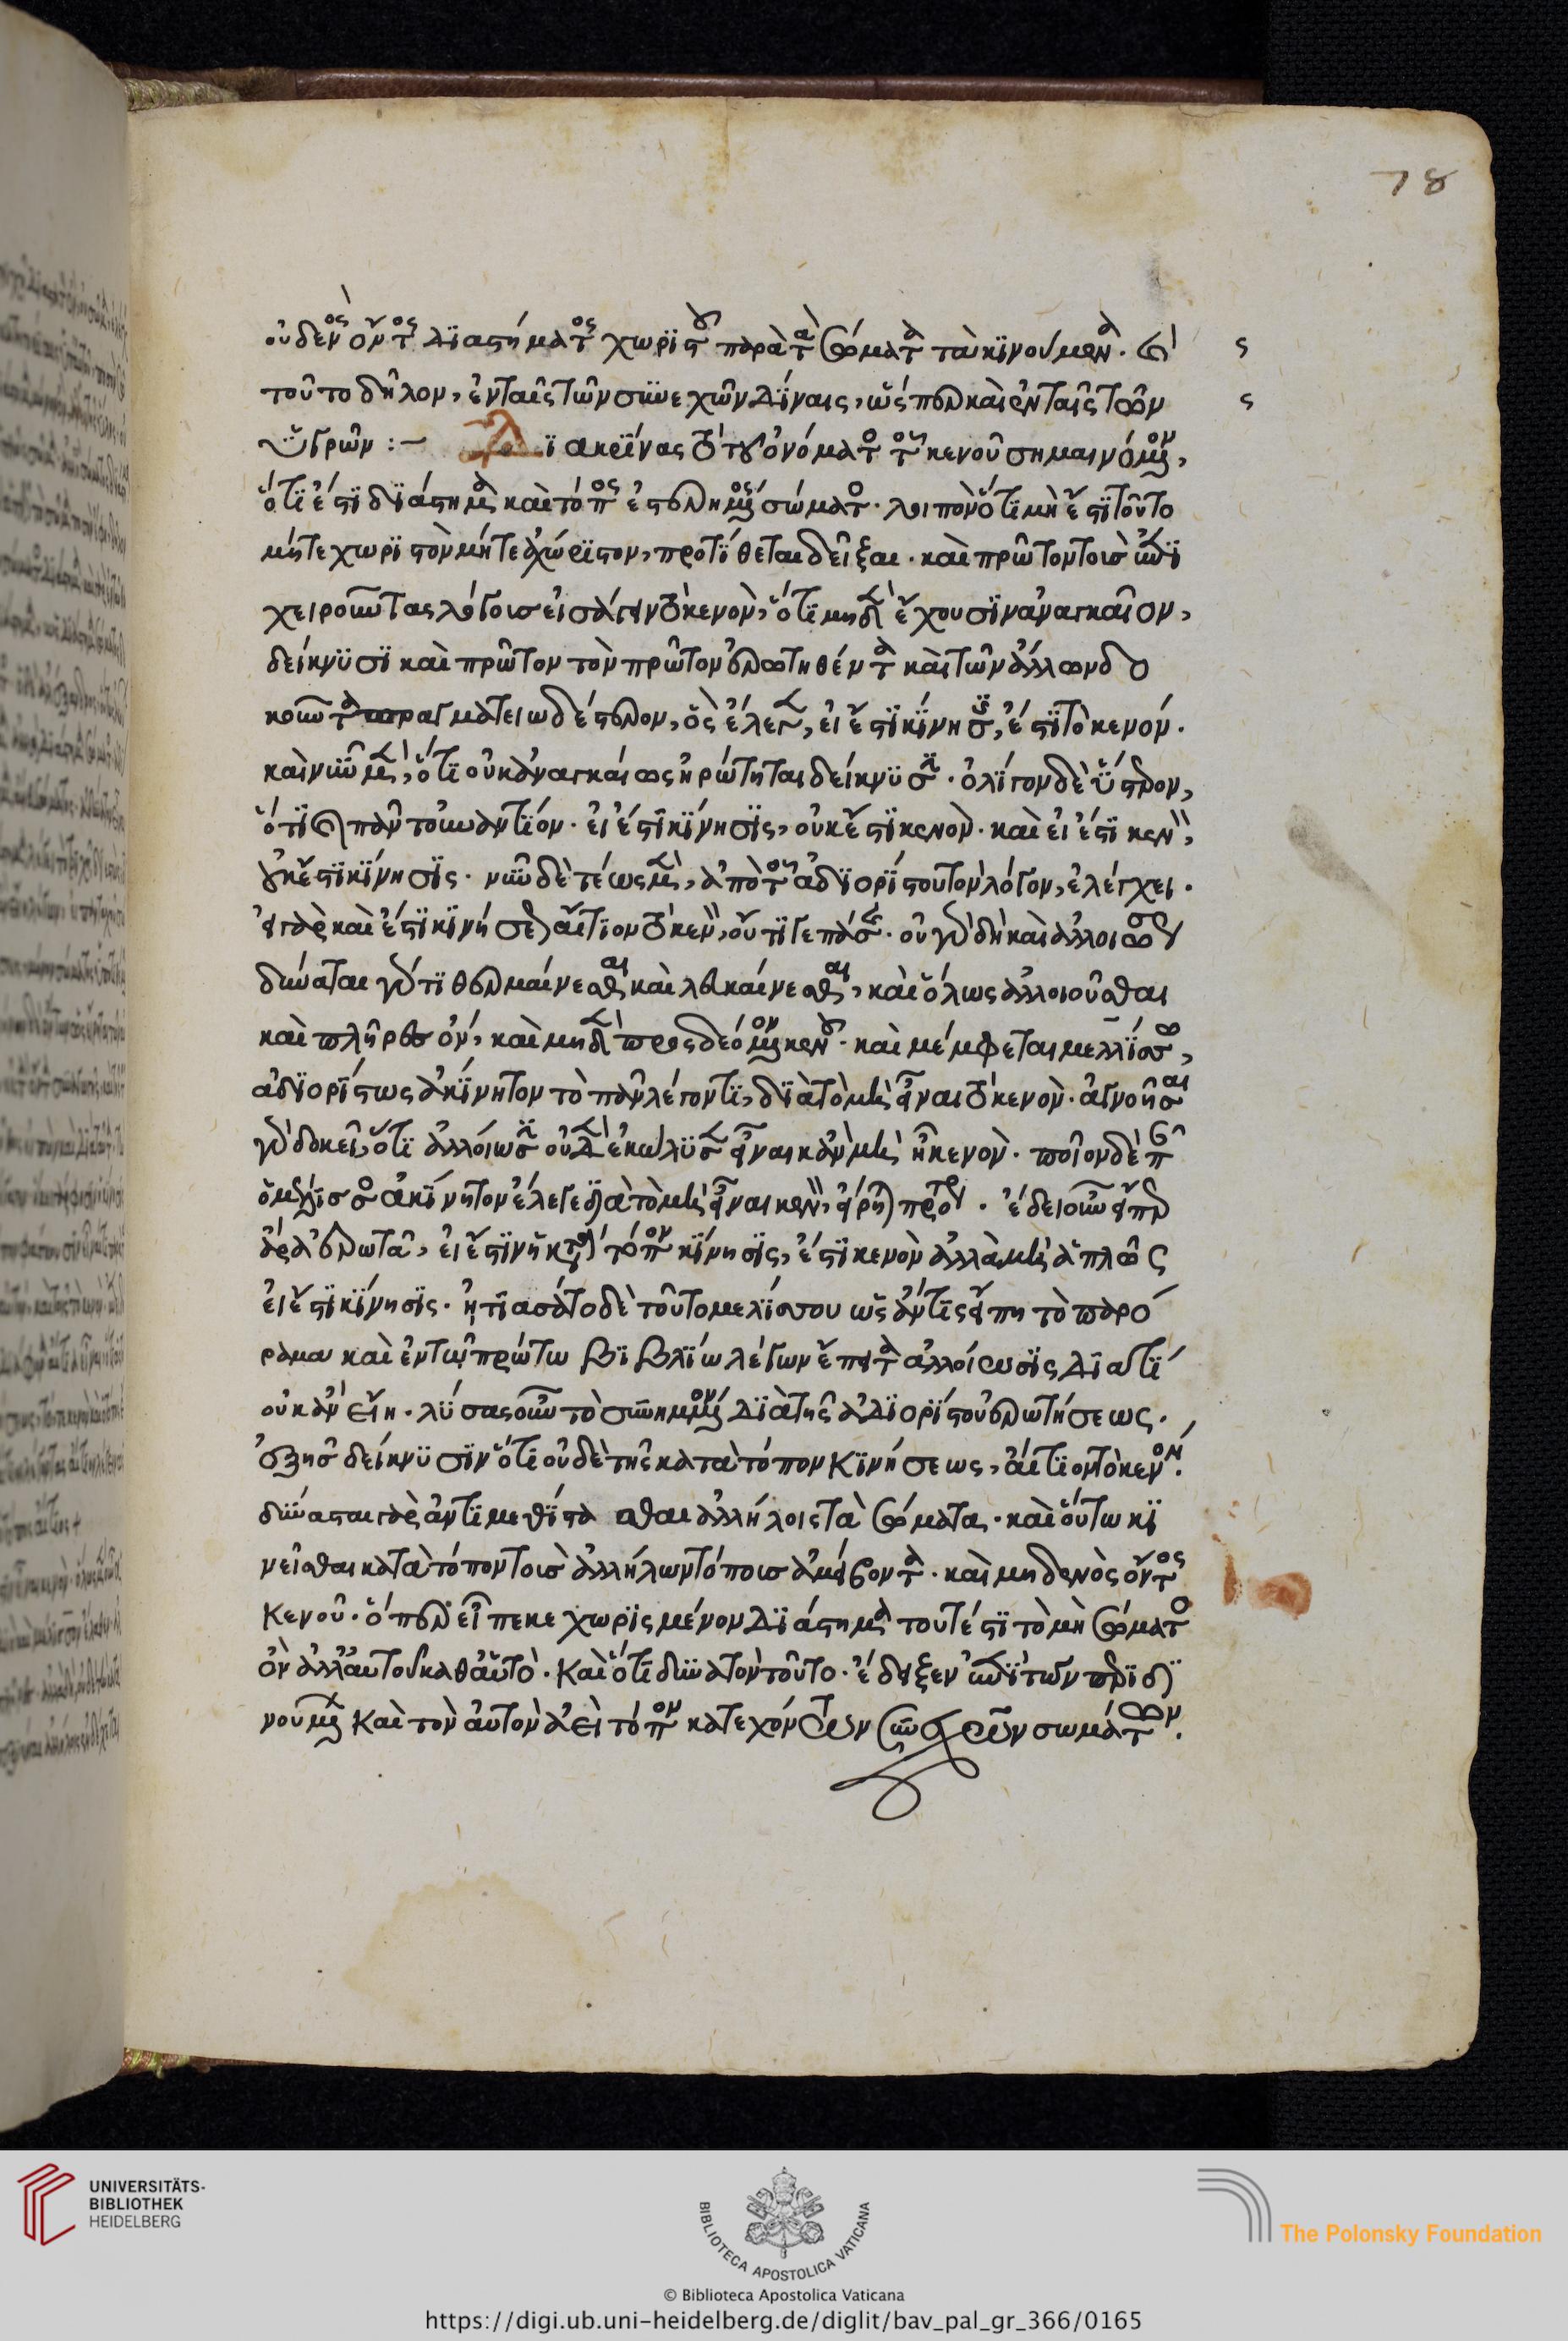 78
οὐδενὸς ὄντος διαστήματος χωριστοῦ παρὰ τὰ σώματα τὰ κινούμενα. καὶ
τοῦτο δῆλον, ἐν ταῖς τῶν συνεχῶν δίναις, ὥσπερ καὶ ἐν ταῖς τῶν
ὑγρῶν :– Διακρίνας τὸ τοῦ ὀνόματος τοῦ κενοῦ σημαινόμενον,
ὅτι ἐστὶ διάστημα καὶ τόπος ἐστερημένος σώματος. λοιπὸν ὅτι μὴ ἔστι τοῦτο
μήτε χωριστὸν μήτε ἀχώριστον, προτίθεται δεῖξαι. καὶ πρῶτον τοῖς ἐπι
χειροῦντας λόγοις εἰσάγειν τὸ κενὸν, ὅτι μηδὲν ἔχουσιν ἀναγκαῖον,
δείκνυσι καὶ πρῶτον τὸν πρῶτον ἐρωτηθέντα καὶ τῶν ἄλλων δο
κοῦντα πραγματειωδέστερον, ὃς ἔλεγεν, εἰ ἔστι κίνησις, ἔστι τὸ κενόν.
καὶ νῦν μὲν, ὅτι οὐκ ἀναγκαίως ἠρώτηται δείκνυσιν. ὀλίγον δὲ ὕστερον,
ὅτι πᾶν τοὐναντίον. εἰ ἔστι κίνησις, οὐκ ἔστι κενὸν. καὶ εἰ ἔστι κενὸν,
οὐκ ἔστι κίνησις. νῦν δὲ τέως μὲν, ἀπὸ τοῦ ἀδιορίστου τὸν λόγον, ἐλέγχει.
εἰ γὰρ καὶ ἔστι κινήσεως αἴτιον τὸ κενὸν, οὔτι γε πάσης. οὐ γὰρ δὴ καὶ ἀλλοιώσεως
δύναται γάρ τι θερμαίνεσθαι καὶ λευκαίνεσθαι, καὶ ὅλως ἀλλοιοῦσθαι
καὶ πλῆρες ὄν, καὶ μηδὲν προσδεόμενον κενοῦ. καὶ μέμφεται μελλίσσῳ,
ἀδιορίστως ἀκίνητον τὸ πᾶν λέγοντι, διὰ τὸ μὴ εἶναι τὸ κενὸν. ἀγνοῆσαι
γὰρ δοκεῖ, ὅτι ἀλλοίωσιν οὐδὲν ἐκώλυσεν εἶναι κἂν μὴ ᾖ κενὸν.
ἀκίνητον ἔλεγε διὰ τὸ μὴ εἶναι κενὸν, εἴρηται πρότερον. ἔδει οὖν εἴπερ
ἄρα ἐρωτᾶν, εἰ ἔστιν ἡ κατὰ τόπον κίνησις, ἔστι κενὸν ἀλλὰ μὴ ἁπλῶς
εἰ ἔστι κίνησις. ᾐτιάσατο δὲ τοῦτο μελίσσου ὡς ἄν τις εἴπῃ τὸ παρό
ραμα καὶ ἐν τῷ πρώτῳ βιβλίῳ λέγων ἔπειτα ἀλλοίωσις διατί
οὐκ ἂν εἴη. λύσας οὖν τὸ συνημμένον διὰ τῆς ἀδιορίστου ἐρωτήσεως.
ἑξῆς δείκνυσιν ὅτι οὐδὲ τῆς κατὰ τόπον κινήσεως, αἴτιον τὸ κενὸν.
δύναται γὰρ ἀντιμεθίστασθαι ἀλλήλοις τὰ σώματα. καὶ οὕτω κι
νεῖσθαι κατὰ τόπον τοῖς ἀλλήλων τόποις ἀμείβοντα. καὶ μηδενὸς ὄντος
κενοῦ. ὅπερ εἶπε κεχωρισμένον διάστημα τουτέστι τὸ μὴ σώματος
ὂν ἀλλ' αὐτοῦ καθ' αὑτὸ. καὶ ὅτι δυνατὸν τοῦτο. ἔδειξεν ἐπὶ τῶν περιδι
νουμένων καὶ τὸν αὐτὸν ἀεὶ τόπον κατεχόντων συνεχῶν σωμάτων.
ς
ς
UNIVERSITÄTS-
BIBLIOTHEK
HEIDELBERG
BIBLIOTECA APOSTOLICA VATICANA
The Polonsky Foundation
© Biblioteca Apostolica Vaticana
https://digi.ub.uni-heidelberg.de/diglit/bav_pal_gr_366/0165